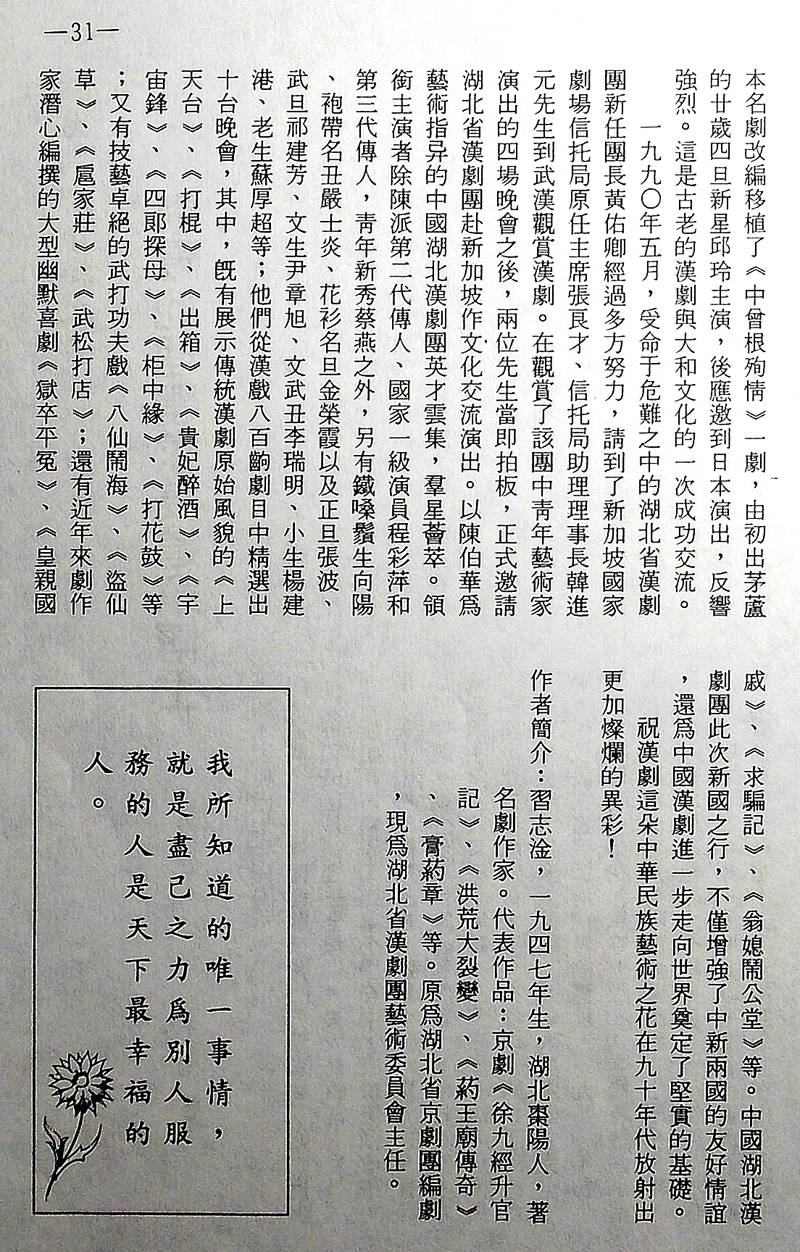 —31—
本名劇改編移植了《中曾根殉情》一劇，由初出茅蘆
的廿歲四旦新星邱玲主演，後應邀到日本演出，反響
強烈。這是古老的漢劇與大和文化的一次成功交流。
一九九〇年五月，受命于危難之中的湖北省漢劇
團新任團長黃佑卿經過多方努力，請到了新加坡國家
劇場信托局原任主席張良才、信托局助理理事長韓進
元先生到武漢觀賞漢劇。在觀賞了該團中靑年藝術家
演出的四場晚會之後，兩位先生當即拍板，正式邀請
湖北省漢劇團赴新加坡作文化交流演出。以陳伯華爲
藝術指导的中國湖北漢劇團英才雲集，羣星薈萃。領
銜主演者除陳派第二代傳人、國家一級演員程彩萍和
第三代傳人，靑年新秀蔡燕之外，另有鐵嗓鬚生向陽
、袍帶名丑嚴士炎、花衫名旦金榮霞以及正旦張波、
武旦祁建芳、文生尹章旭、文武丑李瑞明、小生楊建
港、老生蘇厚超等；他們從漢戲八百齣劇目中精選出
十台晚會，其中，旣有展示傳統漢劇原始風貌的《上
天台》、《打棍》、《出箱》、《貴妃醉酒》、《宇
宙鋒》、《四郞探母》、《柜中緣》、《打花鼓》等
；又有技藝卓絕的武打功夫戲《八仙鬧海》、《盜仙
草》、《扈家莊》、《武松打店》；還有近年來劇作
家潛心編撰的大型幽默喜劇《獄卒平冤》、《皇親國
戚》、《求騙記》、《翁媳鬧公堂》等。中國湖北漢
劇團此次新國之行，不僅增強了中新兩國的友好情誼
，還爲中國漢劇進一步走向世界奠定了堅實的基礎。
祝漢劇這朵中華民族藝術之花在九十年代放射出
更加燦爛的異彩！
作者簡介：習志淦，一九四七年生，湖北棗陽人，著
名劇作家。代表作品：京劇《徐九經升官
記》、《洪荒大裂變》、《葯王廟傳奇》
、《膏葯章》等。原爲湖北省京劇團編劇
，現爲湖北省漢劇團藝術委員會主任。
我所知道的唯一事情，
就是盡己之力爲別人服
務的人是天下最幸福的
人。